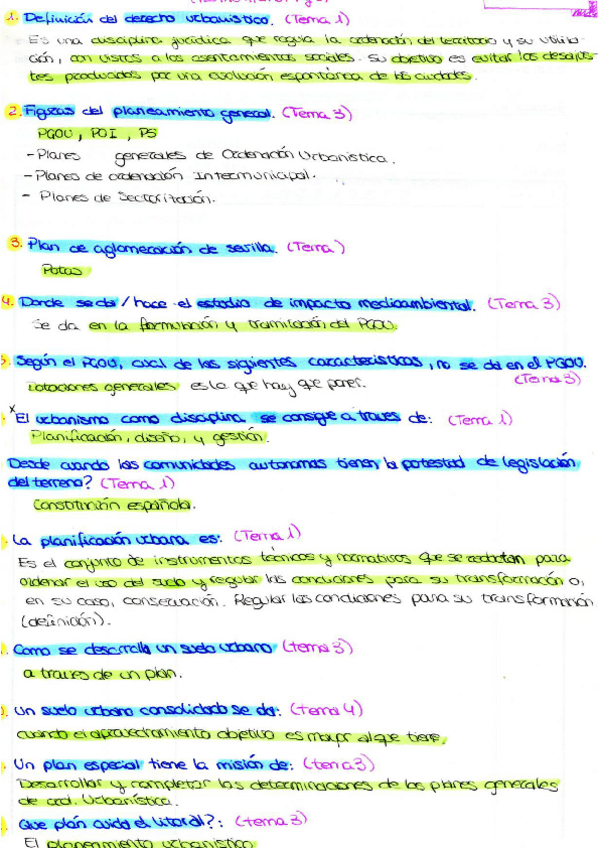 1. Definición del derecho urbanístico. (Tema 1)
Es una disciplina jurídica que regula la ordenación del territorio y su utiliza-
ción, con vistas a los asentamientos sociales. Su objetivo es evitar los desajus-
tes producidos por una evolución espontánea de las ciudades.
2. Figuras del planeamiento general. (Tema 3)
PGOU, POI, PS
- Planes generales de Ordenación Urbanística.
- Planes de ordenación Intermunicipal.
- Planes de Sectorización.
3. Plan de aglomeración de sevilla. (Tema )
Potas
4. Donde se da / hace el estudio de impacto medioambiental. (Tema 3)
Se da en la formulación y tramitación del PGOU.
5. Según el PGOU, cual de las siguientes características, no se da en el PGOU.
(Tema 3)
Dotaciones generales es la que hay que poner.
* El urbanismo como disciplina se consigue a traves de: (Tema 1)
Planificación, diseño, y gestión.
Desde cuando las comunidades autonomas tienen la potestad de legislación
del terreno? (Tema 1)
Constitución española.
La planificación urbana es: (Tema 1)
Es el conjunto de instrumentos técnicos y normativos que se redactan para
ordenar el uso del suelo y regular las condiciones para su transformación o,
en su caso, conservación. Regular las condiciones para su transformación
(definición).
Como se desarrolla un suelo urbano (tema 3)
a traves de un plan.
Un suelo urbano consolidado se da: (tema 4)
cuando el aprovechamiento objetivo es mayor al que tiene.
Un plan especial tiene la misión de: (tema 3)
Desarrollar y completar las determinaciones de los planes generales
de ord. Urbanística.
Que plan cuida el litoral?: (tema 3)
El planeamiento urbanístico